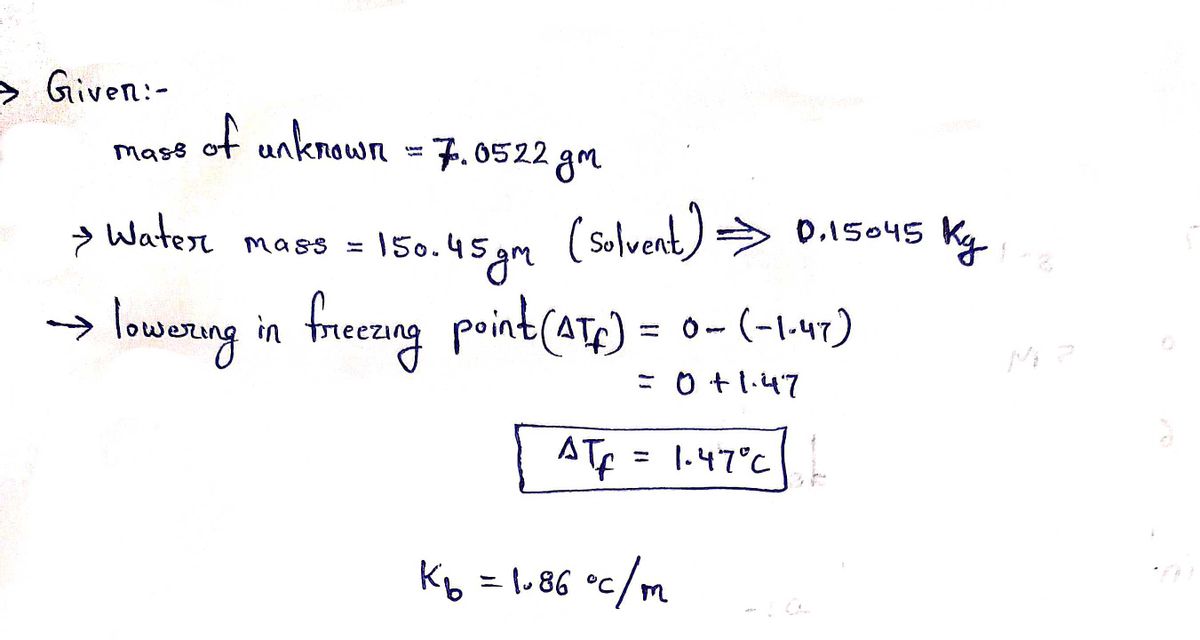 → Given:-
mass of unknown = 7.0522 gm
→ Water mass = 150.45 gm (Solvent) ⇒ 0.15045 Kg
→ lowering in freezing point (ΔTf) = 0 - (-1.47)
= 0 + 1.47
ΔTf = 1.47°C
Kb = 1.86 °C/m